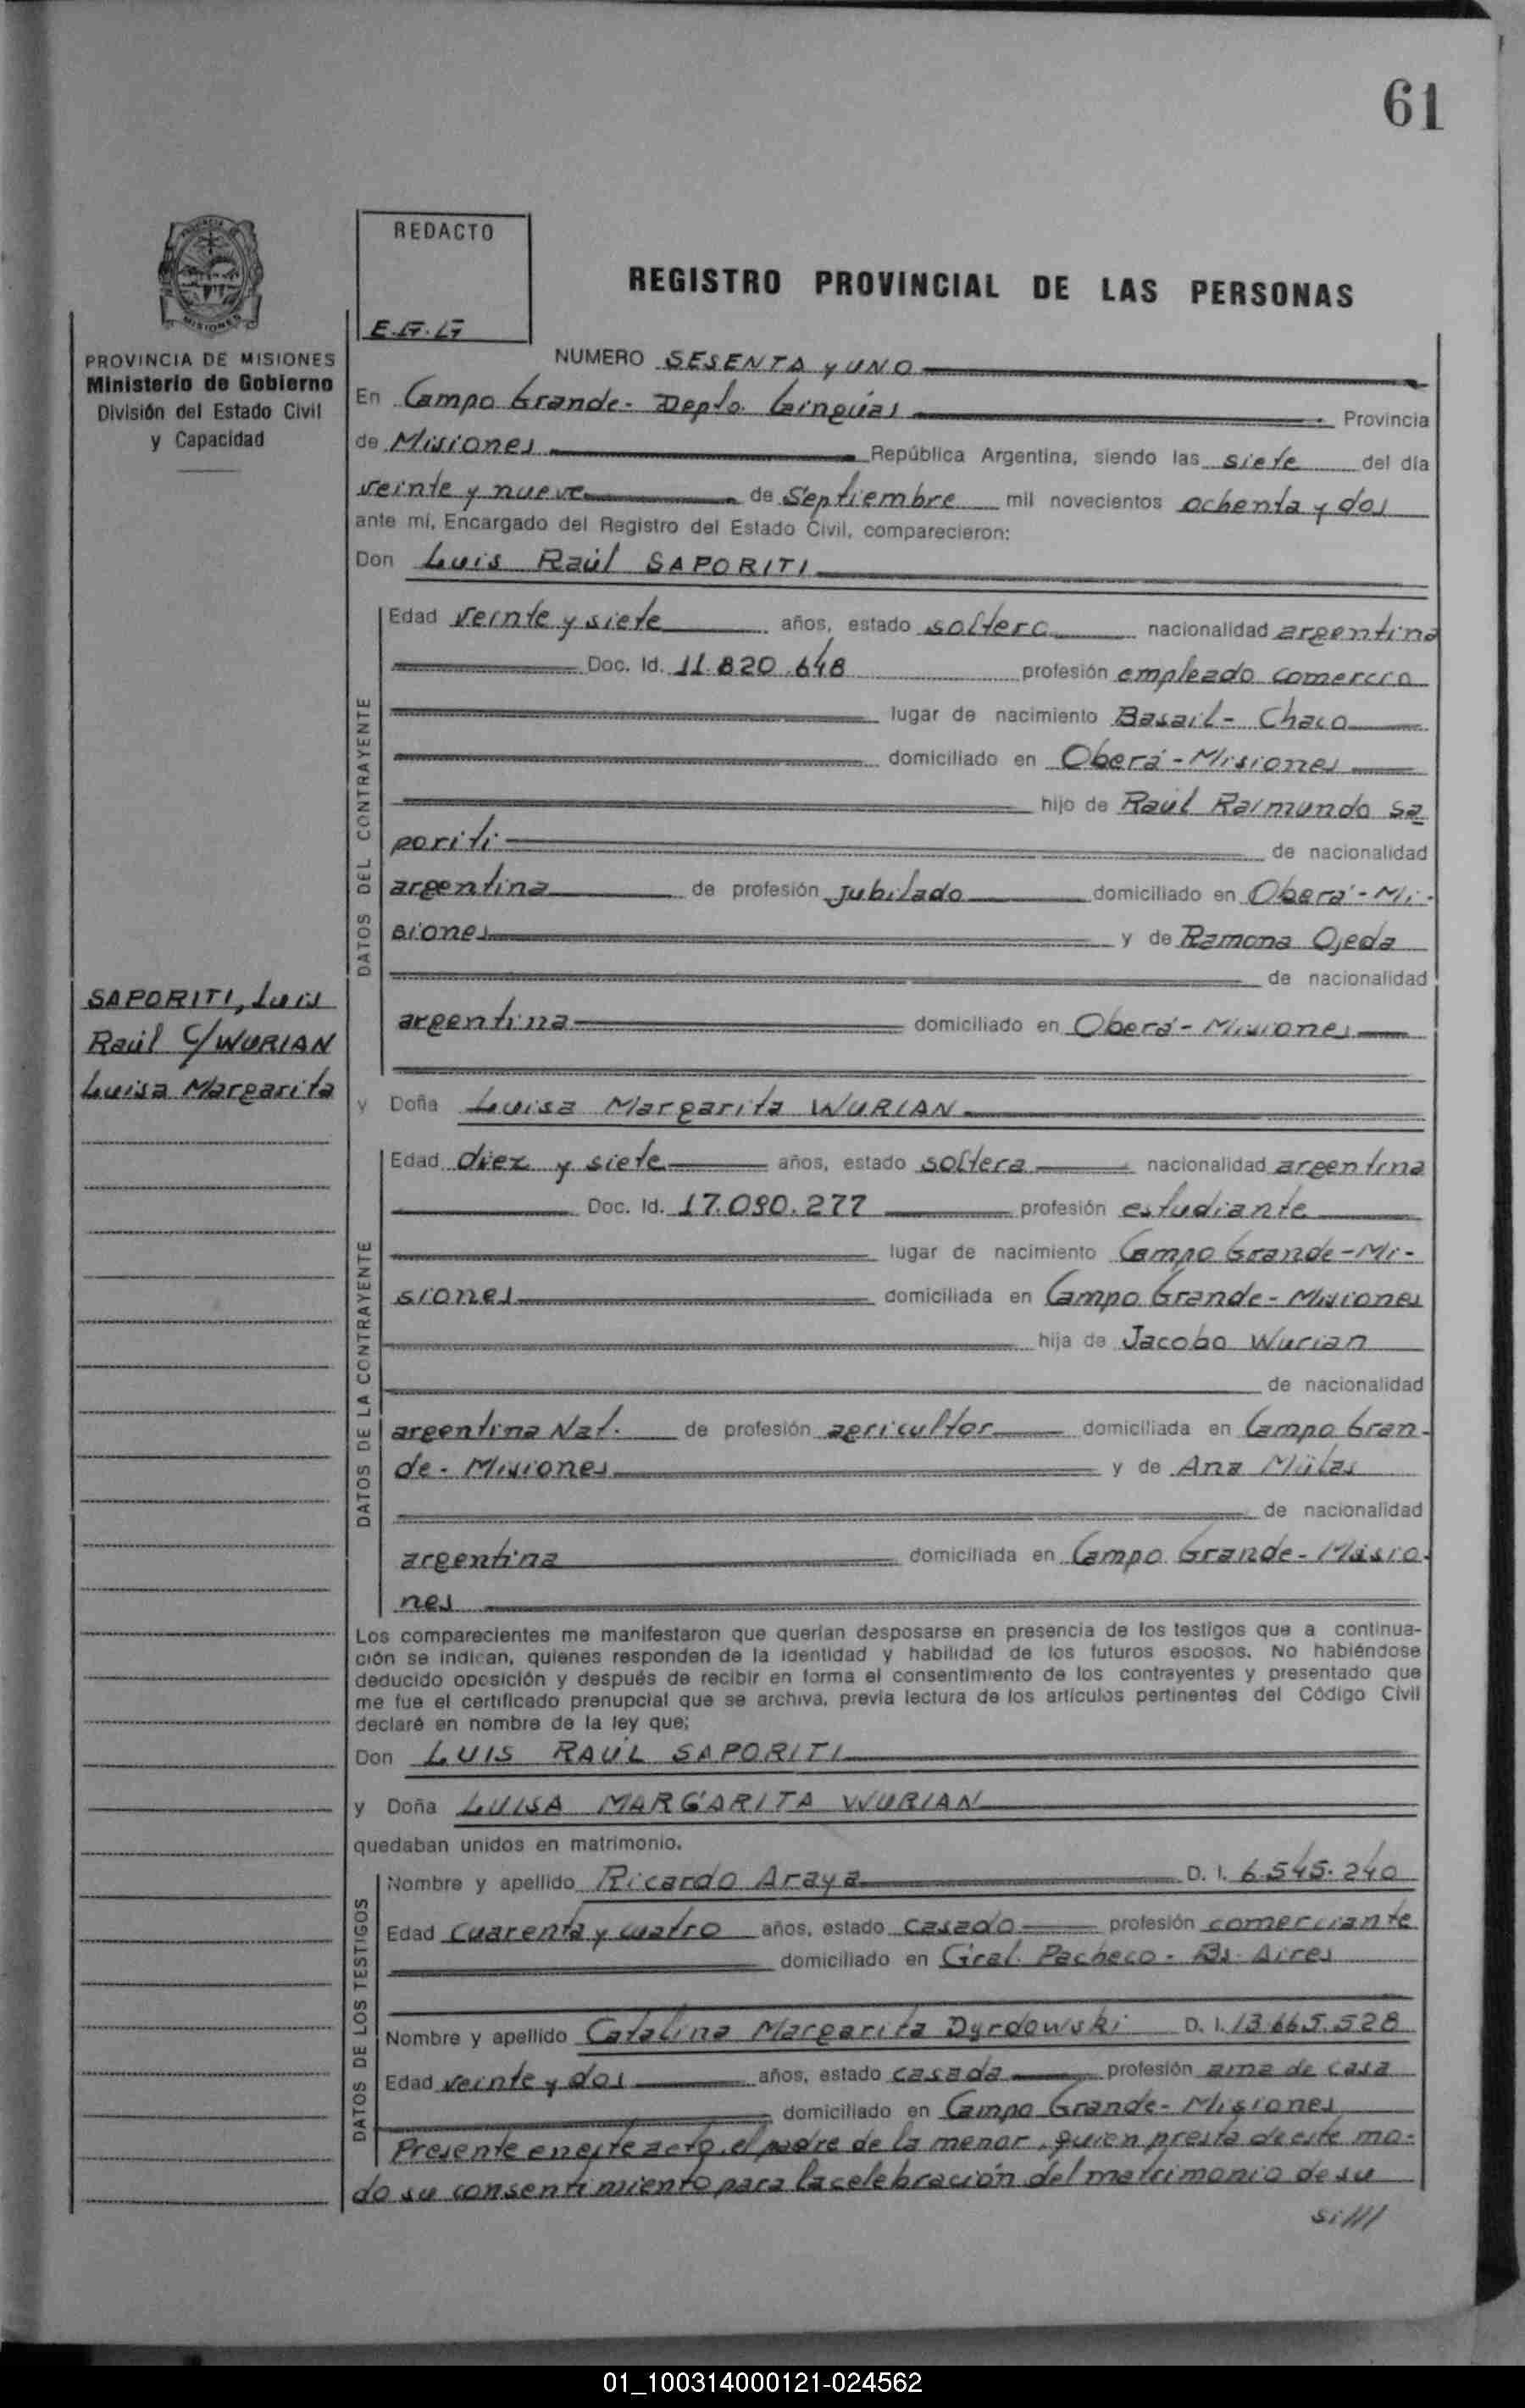 61
REDACTO
REGISTRO PROVINCIAL DE LAS PERSONAS
MISIONES
PROVINCIA DE MISIONES
Ministerio de Gobierno
División del Estado Civil
y Capacidad
NUMERO SESENTA y UNO
En Campo Grande - Depto. Cainguás Provincia
de Misiones República Argentina, siendo las siete del día
veinte y nueve de Septiembre mil novecientos ochenta y dos
ante mí, Encargado del Registro del Estado Civil, comparecieron:
Don Luis Raúl SAPORITI
DATOS DEL CONTRAYENTE
Edad veinte y siete años, estado soltero nacionalidad argentina
Doc. Id. 11.820.648 profesión empleado comercio
lugar de nacimiento Basail - Chaco
domiciliado en Oberá - Misiones
hijo de Raúl Raimundo Sa
poriti de nacionalidad
argentina de profesión jubilado domiciliado en Oberá - Mi-
siones y de Ramona Ojeda
de nacionalidad
argentina domiciliado en Oberá - Misiones
SAPORITI, Luis
Raúl C/ WURIAN
Luisa Margarita
y Doña Luisa Margarita WURIAN
DATOS DE LA CONTRAYENTE
Edad diez y siete años, estado soltera nacionalidad argentina
Doc. Id. 17.090.277 profesión estudiante
lugar de nacimiento Campo Grande - Mi-
siones domiciliada en Campo Grande - Misiones
hija de Jacobo Wurian
de nacionalidad
argentina Nat. de profesión agricultor domiciliada en Campo Gran-
de - Misiones y de Ana
de nacionalidad
argentina domiciliada en Campo Grande - Misio-
nes
Los comparecientes me manifestaron que querían desposarse en presencia de los testigos que a continua-
ción se indican, quienes responden de la identidad y habilidad de los futuros esposos. No habiéndose
deducido oposición y después de recibir en forma el consentimiento de los contrayentes y presentado que
me fue el certificado prenupcial que se archiva, previa lectura de los artículos pertinentes del Código Civil
declaré en nombre de la ley que;
Don LUIS RAÚL SAPORITI
y Doña LUISA MARGARITA WURIAN
quedaban unidos en matrimonio.
DATOS DE LOS TESTIGOS
Nombre y apellido Ricardo Araya D. I. 6.545.240
Edad cuarenta y cuatro años, estado casado profesión comerciante
domiciliado en Gral. Pacheco - Bs. Aires
Nombre y apellido Catalina Margarita Dyrdowski D. I. 13.665.528
Edad veinte y dos años, estado casada profesión ama de casa
domiciliado en Campo Grande - Misiones
Presente en este acto, el padre de la menor, quien presta de este mo-
do su consentimiento para la celebración del matrimonio de su
si///
01_100314000121-024562